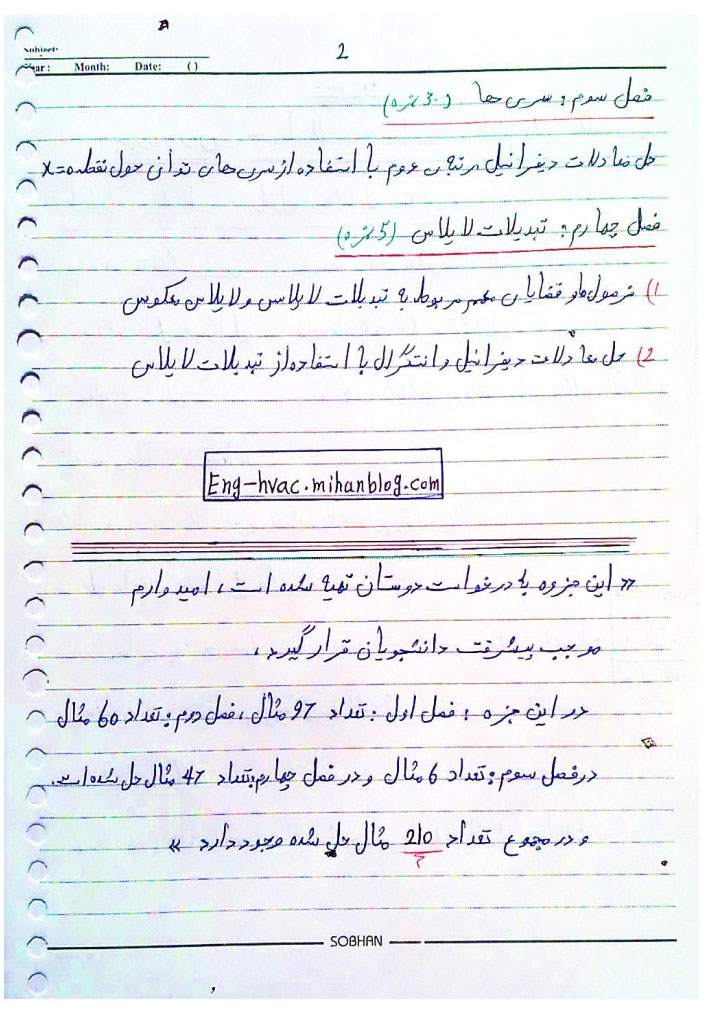 Subject:
Year: Month: Date: ( )
2
فصل سوم: سری ها (3 نمره)
حل معادلات دیفرانیل مرتبه ی دوم با استفاده از سری های توانی حول نقطه x=0
فصل چهارم: تبدیلات لاپلاس (5 نمره)
1) فرمول ها و قضایای مهم مربوط به تبدیلات لاپلاس و لاپلاس معکوس
2) حل معادلات دیفرانیل و انتگرال با استفاده از تبدیلات لاپلاس
Eng-hvac.mihanblog.com
« این جزوه با درخواست دوستان تهیه شده است، امیدوارم
موجب پیشرفت دانشجویان قرار گیرد.
در این جزوه: فصل اول: تعداد 97 مثال، فصل دوم: تعداد 60 مثال
در فصل سوم: تعداد 6 مثال و در فصل چهارم: تعداد 47 مثال حل شده است.
و در مجموع تعداد 210 مثال حل شده وجود دارد »
SOBHAN